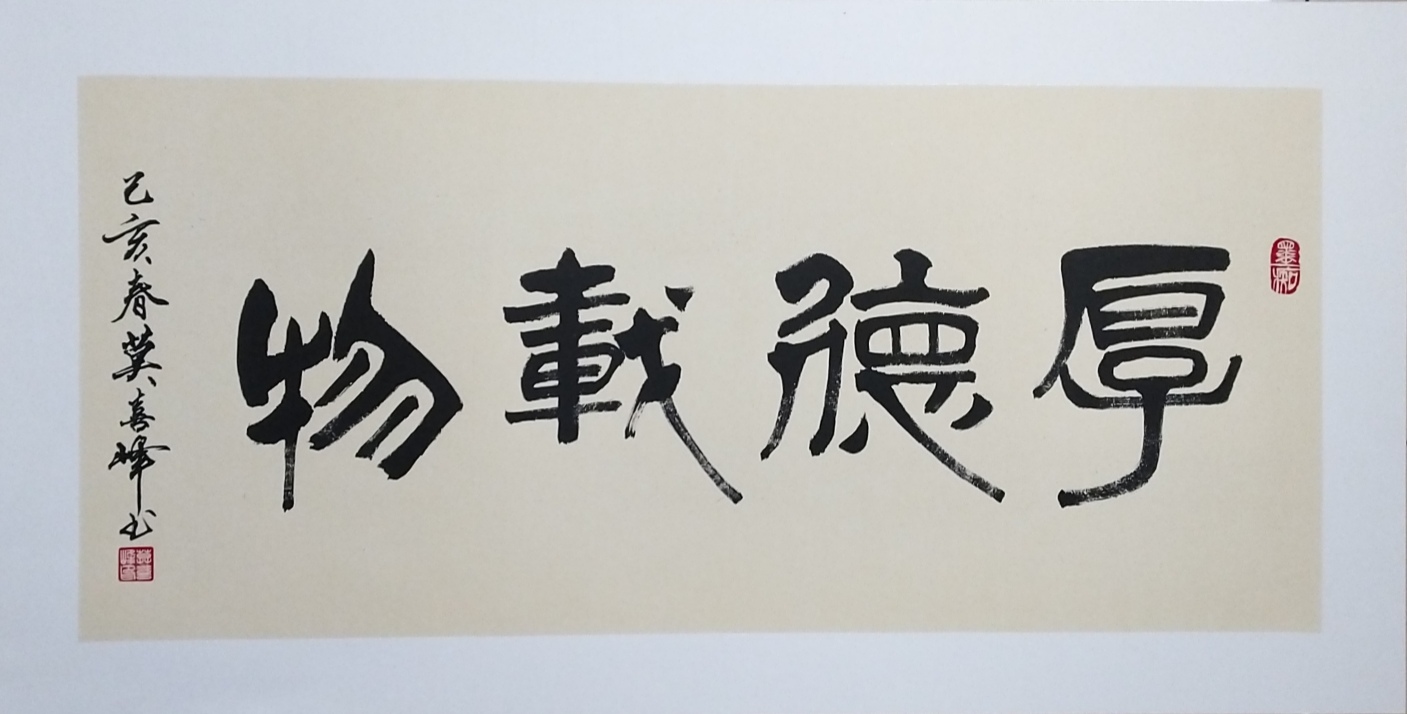 厚德載物
己亥春冀喜峰书